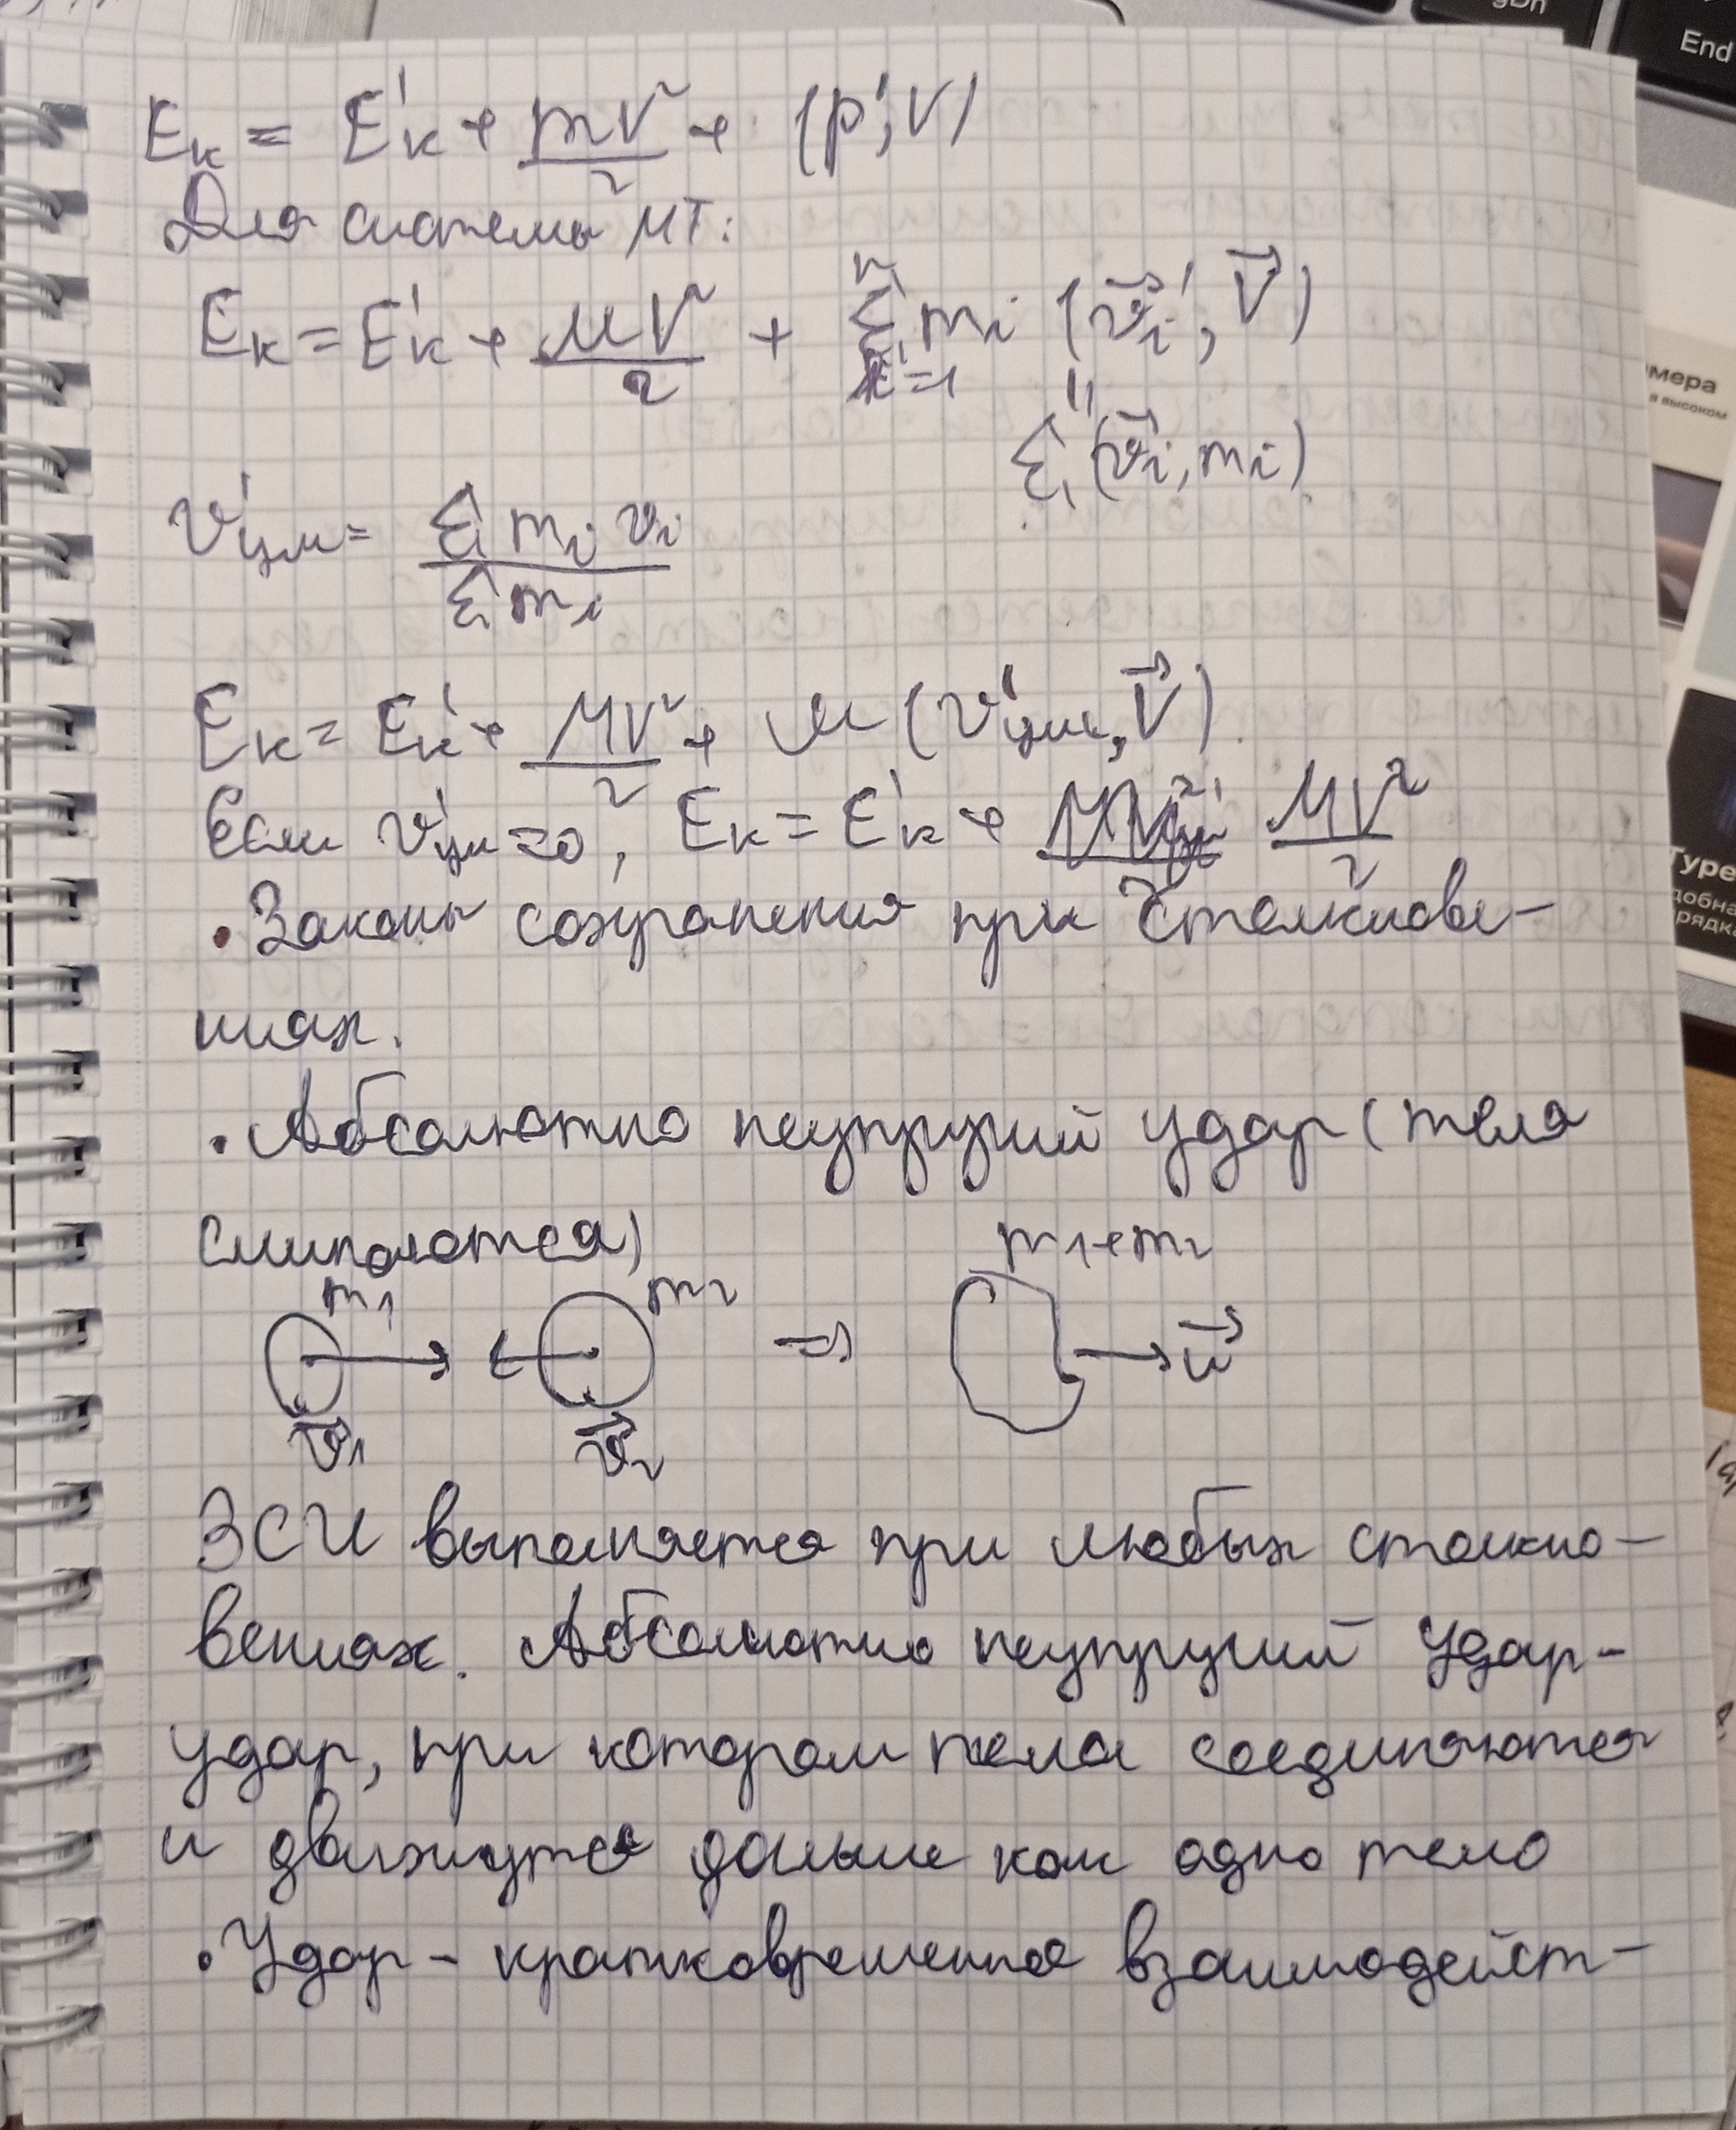 Eк = E'к + mV²/2 + (p', V)
Для системы МТ:
Eк = E'к + MV²/2 + Σⁿᵢ₌₁ mᵢ (v⃗ᵢ', V⃗)
||
Σ (v⃗ᵢ, mᵢ)
v'цм = Σ mᵢ vᵢ / Σ mᵢ
Eк = E'к + MV²/2 + M (v'цм, V⃗).
Если v'цм = 0, Eк = E'к + MV²/2
• Законы сохранения при столкнове-
ниях.
• Абсолютно неупругий удар (тела
слипаются)
m₁ m₂ ⇒ m₁+m₂
v⃗₁ v⃗₂ u⃗
ЗСИ выполняется при любых столкно-
вениях. Абсолютно неупругий удар -
удар, при котором тела соединяются
и движутся дальше как одно тело
• Удар - кратковременное взаимодейст-
gDn
End
мера
в высоком
Type